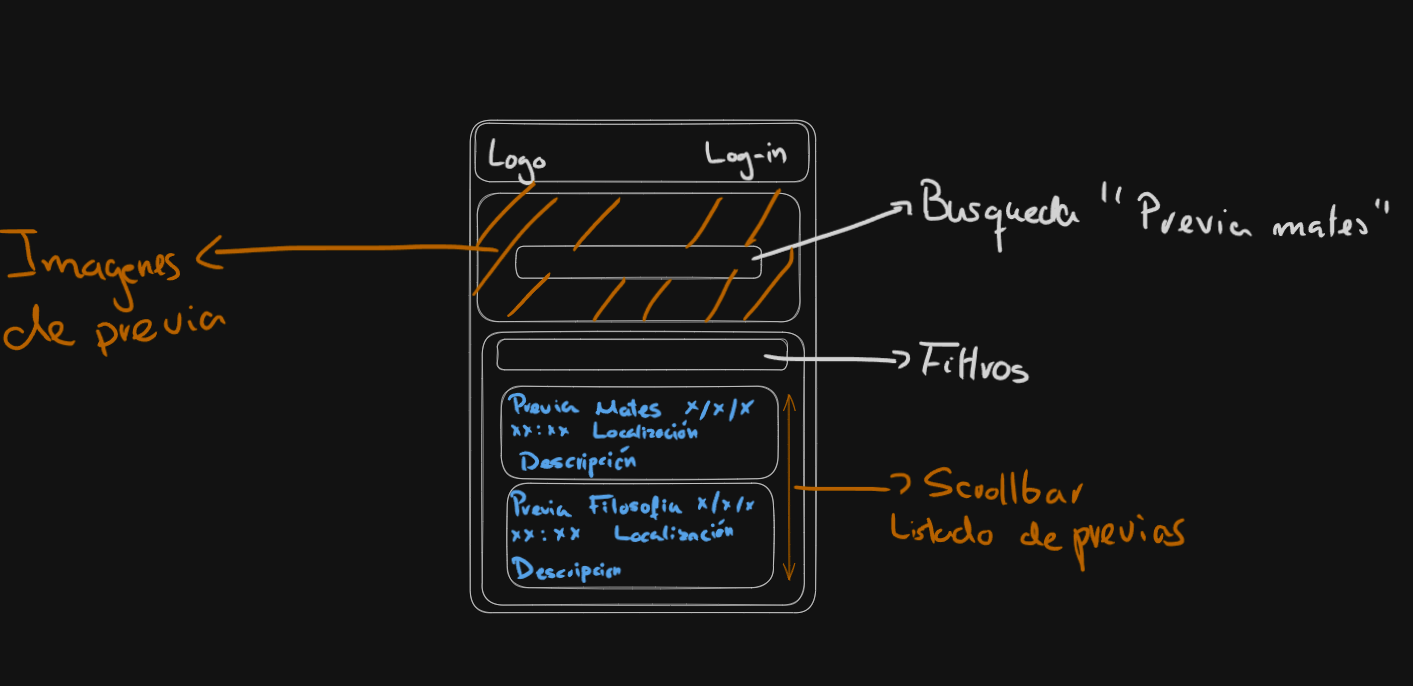 Logo
Log-in
Busqueda "Previa mates"
Imagenes
de previa
Filtros
Previa Mates x/x/x
xx:xx Localización
Descripción
Previa Filosofia x/x/x
xx:xx Localización
Descripcion
Scrollbar
Listado de previas